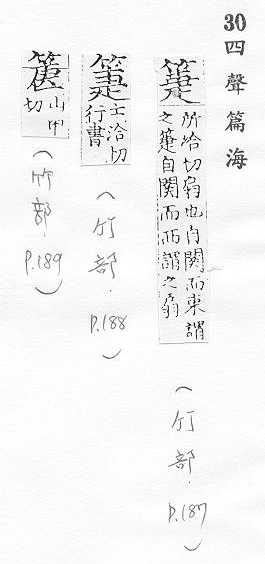 30四聲篇海
箑
所洽切扇也自関而東謂
之箑自関而西謂之扇
(竹部. P.187)
士洽切
行書
(竹部. P.188)
山甲
切
(竹部. P.189)